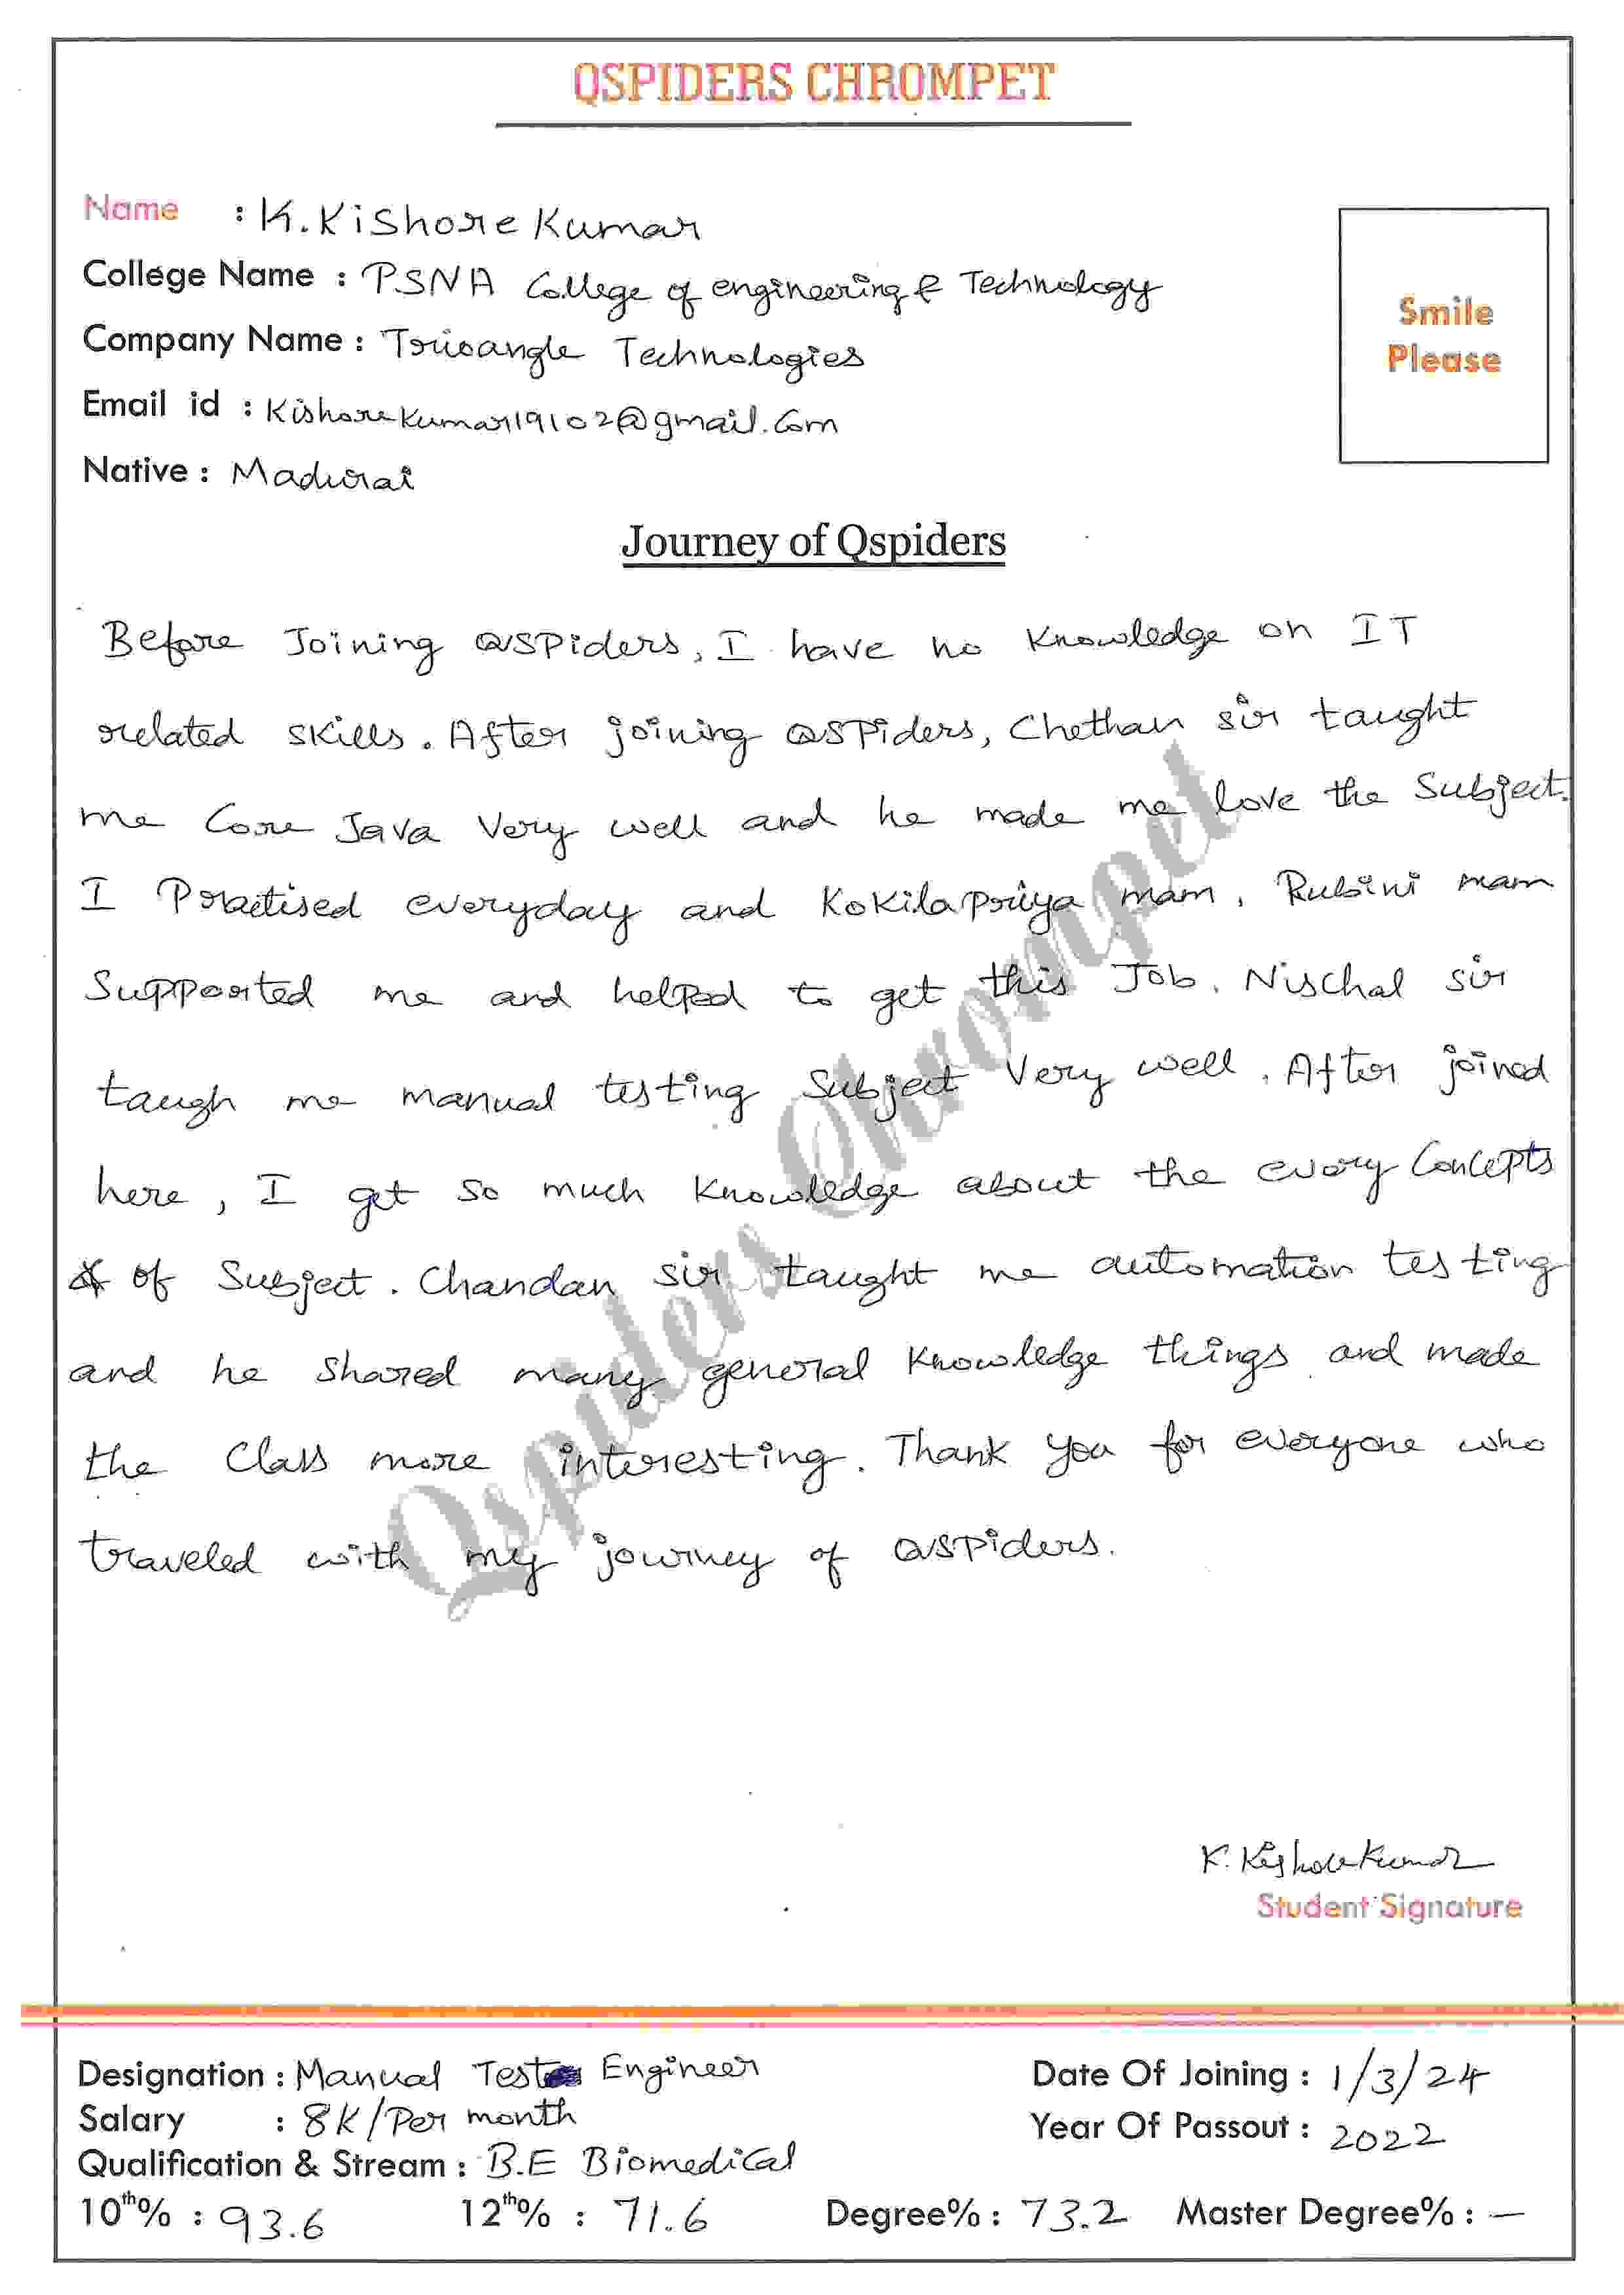 QSPIDERS CHROMPET
Name : K. Kishore Kumar
College Name : PSNA College of engineering & Technology
Company Name : Trioangle Technologies
Email id : Kishorekumar19102@gmail.com
Native : Madurai
Smile
Please
Journey of Qspiders
Before Joining QSPiders, I have no Knowledge on IT
related skills. After joining QSPiders, Chethan sir taught
me Core Java Very well and he made me love the Subject.
I Practised everyday and KoKilapriya mam, Rubini mam
Supported me and helped to get this Job. Nischal sir
taugh me manual testing Subject Very well. After joined
here, I get so much Knowledge about the every Concepts
of Subject. Chandan sir taught me automation testing
and he shared many general Knowledge things and made
the Class more interesting. Thank you for everyone who
traveled with my journey of QSPiders.
Qspiders Chrompet
K. Kishore Kumar
Student Signature
Designation : Manual Test Engineer
Date Of Joining : 1/3/24
Salary : 8K/Per month
Year Of Passout : 2022
Qualification & Stream : B.E Biomedical
10th% : 93.6 12th% : 71.6 Degree% : 73.2 Master Degree% : —